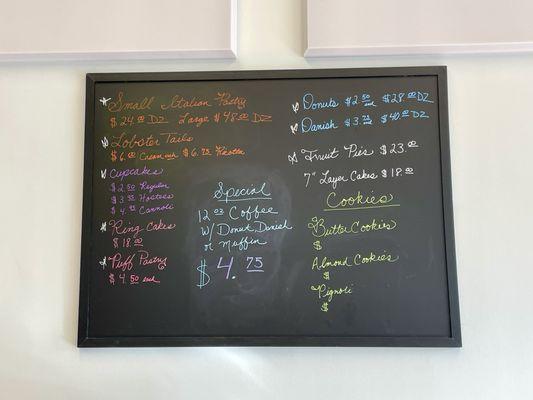 Small Italian Pastry
$24.00 DZ Large $48.00 DZ
Lobster Tails
$6.00 Cream each $6.75 Ricotta
Cupcakes
$2.50 Regular
$3.95 Hostess
$4.95 Cannoli
Ring Cakes
$18.00
Puff Pastry
$4.50 each
Special
12 oz Coffee
w/ Donut, Danish
or Muffin
$4.75
Donuts $2.50 each $28.00 DZ
Danish $3.75 each $40.00 DZ
Fruit Pies $23.00
7" Layer Cakes $18.00
Cookies
Butter Cookies
$
Almond Cookies
$
Pignoli
$